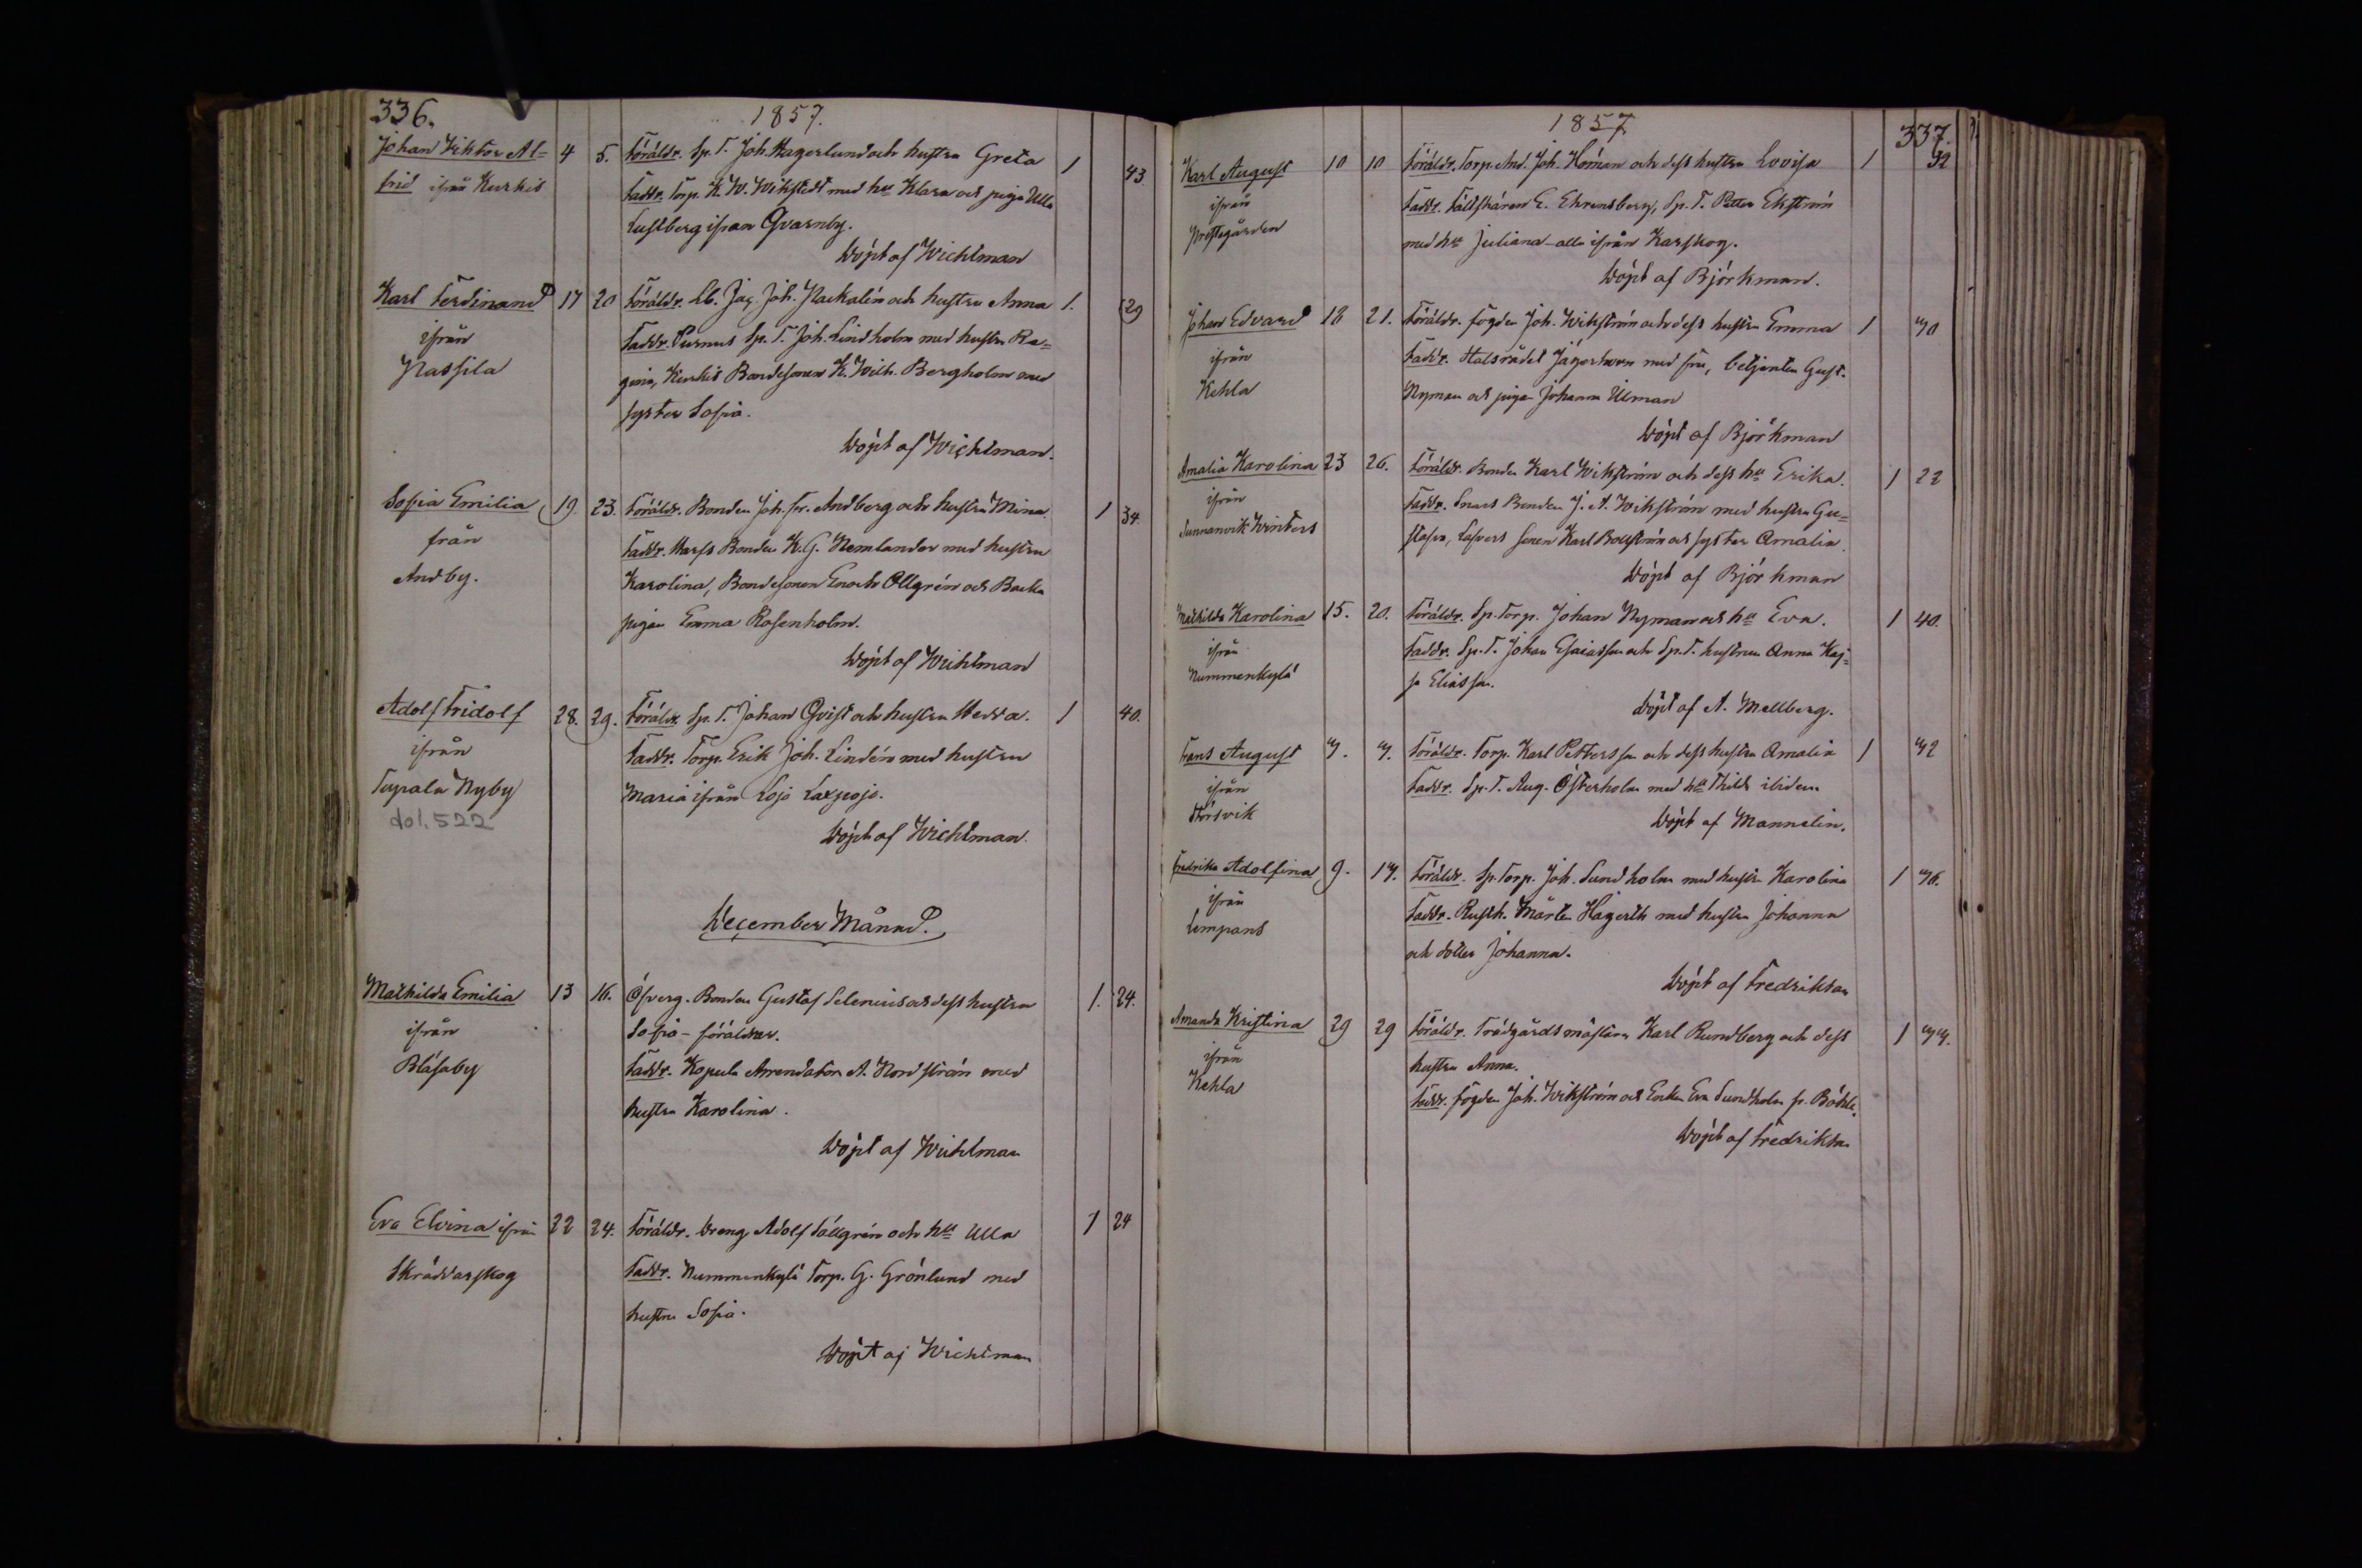 336.
1857.
Johan Viktor Al= 4 5. Föräldr. Sp. T. Joh. Hagerlund och hustru Greta 1 43
frid ifrån Kurkis Faddr. Torp. K. W. Wikstedt med hu Klara och piga Ulla
Lustberg ifrån Qvarnby.
Döpt af Wichtman
Karl Ferdinand 17 20 Föräldr. Lb. Jäg. Joh. Nackalin och hustru Anna 1. 29
ifrån Faddr. Purnus Sp. T. Joh. Lindholm med hustru Re=
Nassila gina, Kurkis Bondesonen K. Wilh. Bergholm med
syster Sofia.
Döpt af Wichtman.
Sofia Emilia 19. 23. Föräldr. Bonden Joh. Fr. Andberg och hustru Mina 1 34.
från Faddr. Marss Bonden K. G. Nemlander med hustru
Andby. Karolina, Bondesonen Enoch Ollgrén och Backa
pigan Emma Rosenholm.
Döpt af Wichtman
Adolf Fridolf 28. 29. Föräldr. Sp. T. Johan Qvist och hustru Hedda. 1 40.
ifrån Faddr. Torp. Erik Joh. Lindén med hustru
Typala Nyby Maria ifrån Lojo Laxpojo.
dol. 522
Döpt af Wichtman.
December Månad.
Mathilda Emilia 13 16. Öfverg. Bonden Gustaf Selenius och dess hustru 1. 24.
ifrån Sofia - föräldrar.
Blåsaby Faddr. Kopula Arrendator A. Nordström med
hustru Karolina.
Döpt af Wichtman
Eva Elvina ifrån 22 24. Föräldr. Dreng Adolf Sällgrén och hu Ulla 1 24
Skräddarskog Faddr. Nummenkylä Torp. G. Grönlund med
hustru Sofia.
Döpt af Wichtman
1857
337.
Karl August 10 10 Föräldr. Torp. And. Joh. Homan och dess hustru Lovisa 1 32
ifrån Faddr. Fältskären E. Ehrensberg, Sp. T. Petter Ekström
Prestgården med hu Juliana - alla ifrån Karskog.
Döpt af Björkman.
Johan Edvard 18 21. Föräldr. fogden Joh. Wikström och dess hustru Emma 1 40
ifrån Faddr. Statsrådet Jägerhorn med fru, betjenten Gust.
Kehla Nyman och pigan Johanna Ulman
Döpt af Björkman
Amalia Karolina 23 26. Föräldr. Bonden Karl Wikström och dess hu Erika. 1 22
ifrån Faddr. Snars Bonden J. A. Wikström med hustru Gu=
Sunnanvik Winters stafva, Lasvers sonen Karl Bollström och syster Amalia.
Döpt af Björkman
Mathilda Karolina 15. 20. Föräldr. Sp. Torp. Johan Nyman och hu Eva. 1 40.
ifrån Faddr. Sp. T. Johan Esaiasson och Sp. T. hustrun Anna Kaj=
Nummenkylä sa Eliasson.
Döpt af A. Mellberg.
Frans August 4. 4. Föräldr. Torp. Karl Pettersson och dess hustru Amalia 1 42
ifrån Faddr. Sp. T. Aug. Österholm med hu Thilda ibidem
Störsvik
Döpt af Mannelin.
Fredrika Adolfina 9. 14. Föräldr. Sp. Torp. Joh. Sundholm med hustru Karolina 1 46.
ifrån Faddr. Rusth. Mårten Hagerth med hustru Johanna
Limpans och dotter Johanna.
Döpt af Fredrikson
Amanda Kristina 29 29 Föräldr. Trädgårdsmästaren Karl Rundberg och dess 1 44.
ifrån hustru Anna.
Kehla Faddr. fogden Joh. Wikström och Enkan Eva Sundholm fr. Böhle.
Döpt af Fredrikson